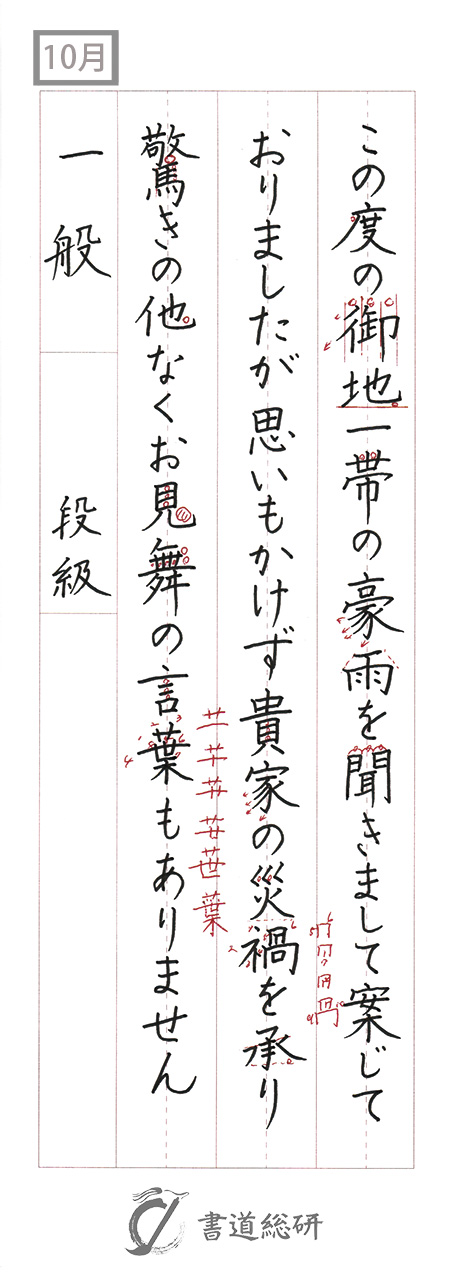 10月
この度の御地一帯の豪雨を聞きまして案じて
おりましたが思いもかけず貴家の災禍を承り
驚きの他なくお見舞の言葉もありません
一般
段級
書道総研